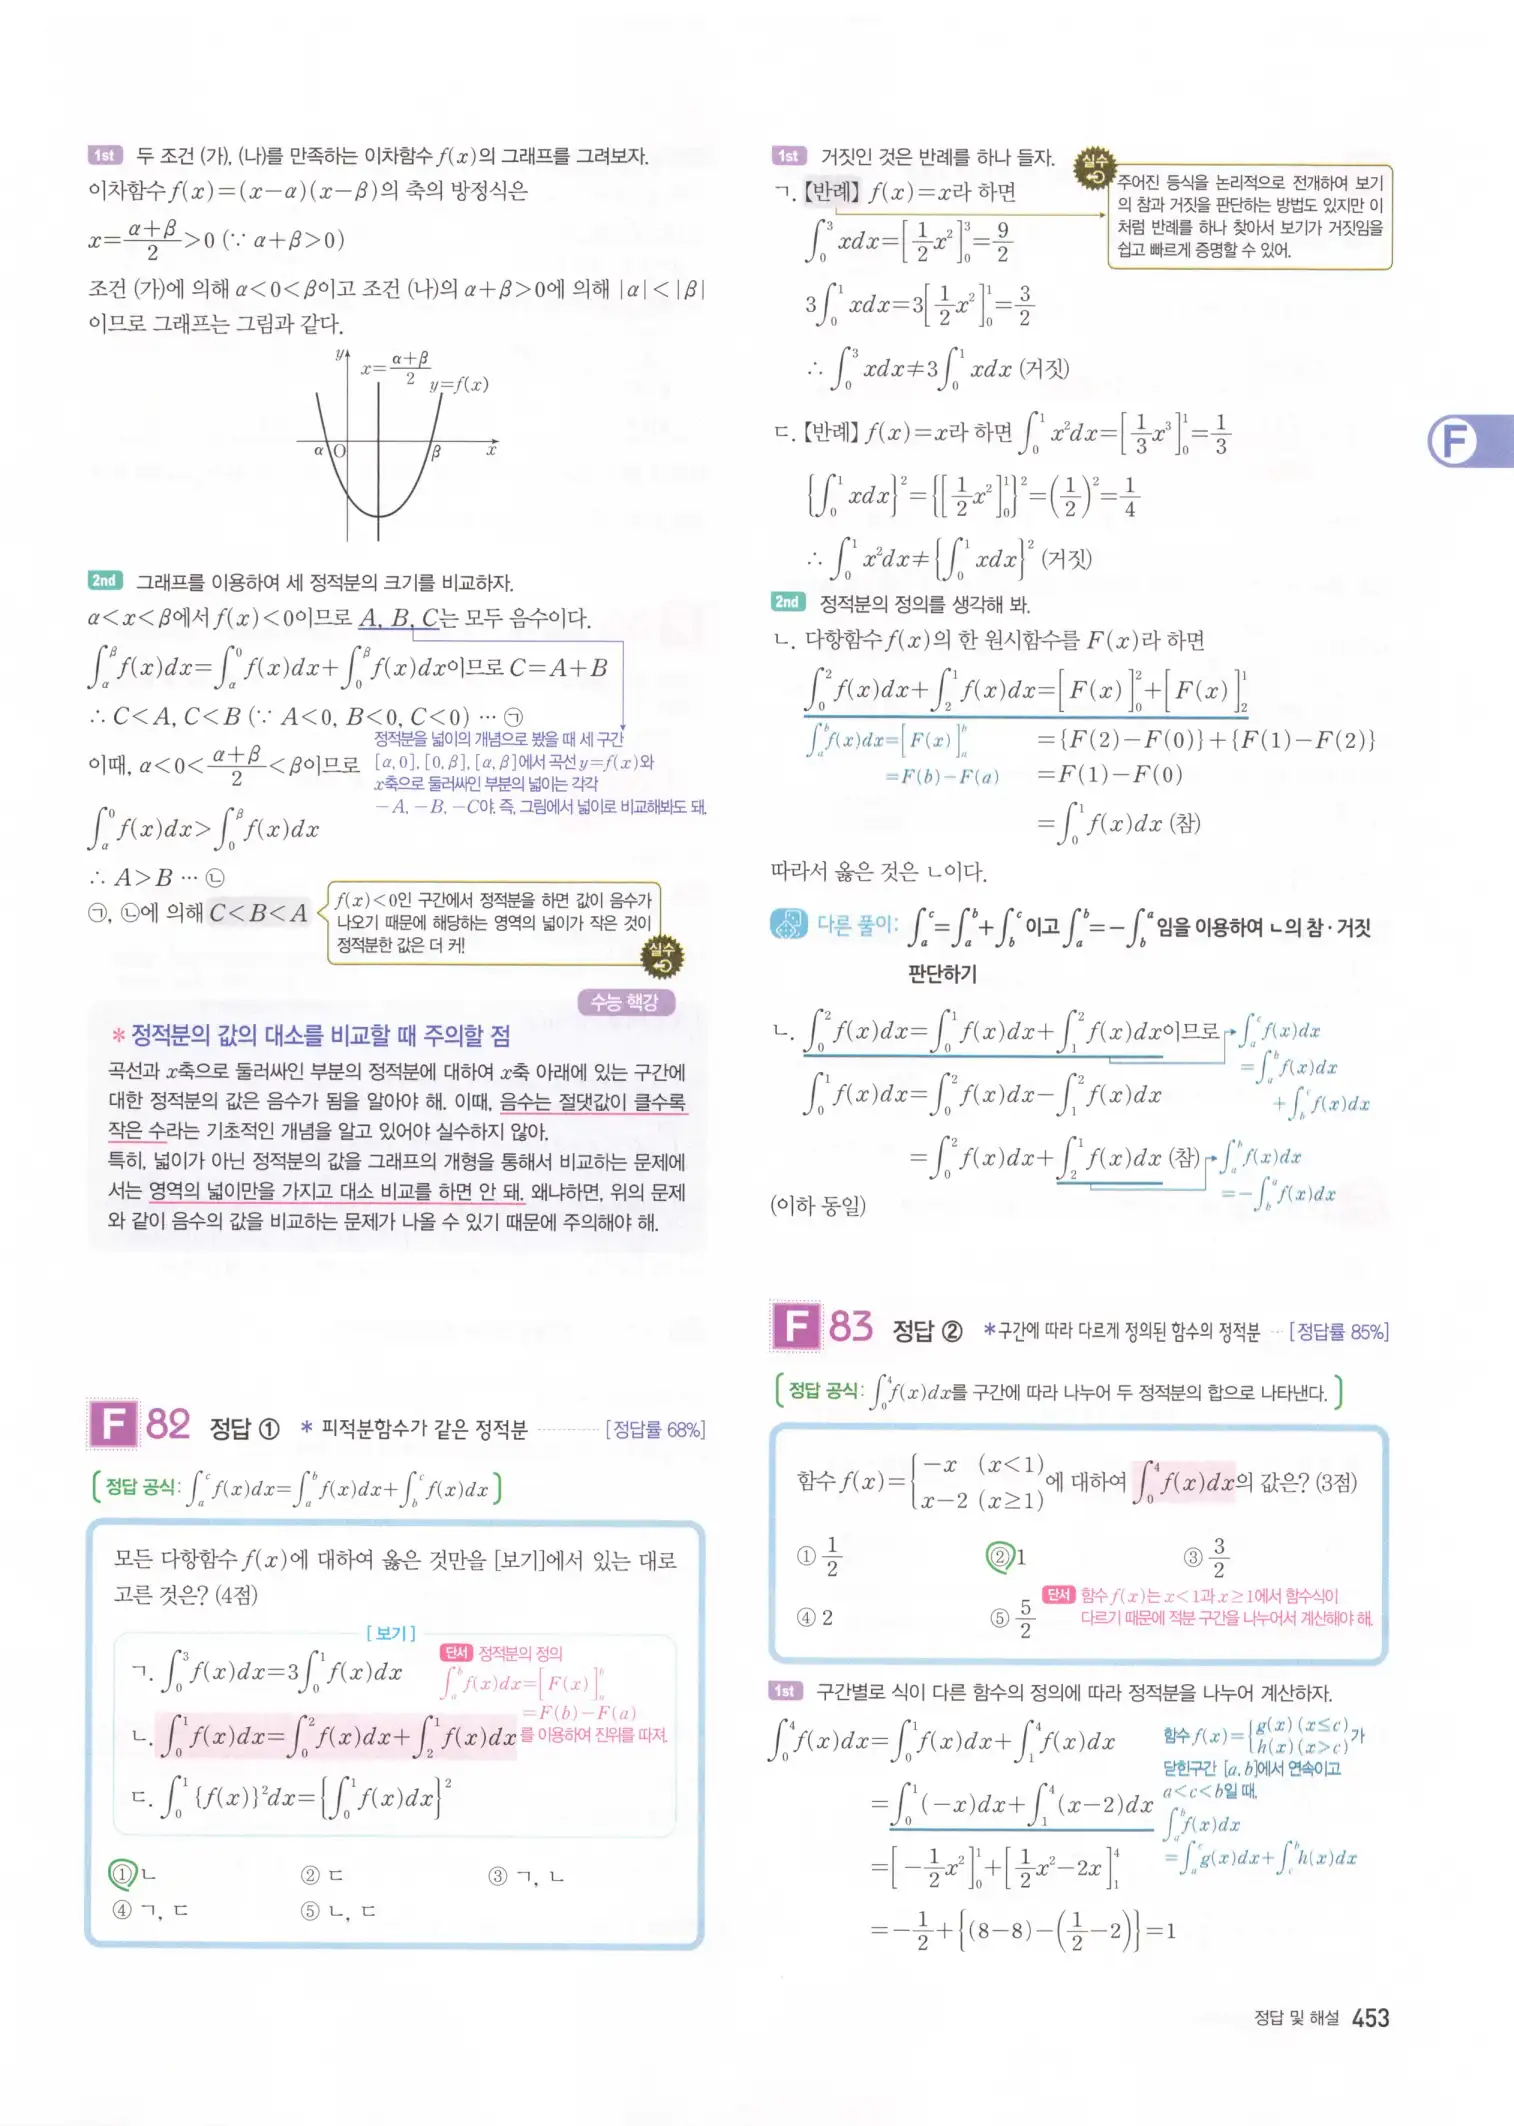 1st 두 조건 (가), (나)를 만족하는 이차함수 f(x)의 그래프를 그려보자.
이차함수 f(x)=(x-α)(x-β)의 축의 방정식은
x=(α+β)/2>0 (∵ α+β>0)
조건 (가)에 의해 α<0<β이고 조건 (나)의 α+β>0에 의해 |α|<|β|
이므로 그래프는 그림과 같다.
y
x=(α+β)/2
y=f(x)
α O β x
2nd 그래프를 이용하여 세 정적분의 크기를 비교하자.
α<x<β에서 f(x)<0이므로 A, B, C는 모두 음수이다.
∫_α^β f(x)dx=∫_α^0 f(x)dx+∫_0^β f(x)dx이므로 C=A+B
∴ C<A, C<B (∵ A<0, B<0, C<0) ··· ㉠
정적분을 넓이의 개념으로 봤을 때 세 구간
[α, 0], [0, β], [α, β]에서 곡선 y=f(x)와
x축으로 둘러싸인 부분의 넓이는 각각
-A, -B, -C야. 즉, 그림에서 넓이로 비교해봐도 돼.
이때, α<0<(α+β)/2<β이므로
∫_α^0 f(x)dx>∫_0^β f(x)dx
∴ A>B ··· ㉡
㉠, ㉡에 의해 C<B<A
f(x)<0인 구간에서 정적분을 하면 값이 음수가
나오기 때문에 해당하는 영역의 넓이가 작은 것이
정적분한 값은 더 커!
실수
수능 핵강
* 정적분의 값의 대소를 비교할 때 주의할 점
곡선과 x축으로 둘러싸인 부분의 정적분에 대하여 x축 아래에 있는 구간에
대한 정적분의 값은 음수가 됨을 알아야 해. 이때, 음수는 절댓값이 클수록
작은 수라는 기초적인 개념을 알고 있어야 실수하지 않아.
특히, 넓이가 아닌 정적분의 값을 그래프의 개형을 통해서 비교하는 문제에
서는 영역의 넓이만을 가지고 대소 비교를 하면 안 돼. 왜냐하면, 위의 문제
와 같이 음수의 값을 비교하는 문제가 나올 수 있기 때문에 주의해야 해.
F 82 정답 ① * 피적분함수가 같은 정적분 ············ [정답률 68%]
(정답 공식: ∫_a^c f(x)dx=∫_a^b f(x)dx+∫_b^c f(x)dx)
모든 다항함수 f(x)에 대하여 옳은 것만을 [보기]에서 있는 대로
고른 것은? (4점)
[보기]
ㄱ. ∫_0^3 f(x)dx=3∫_0^1 f(x)dx
단서 정적분의 정의
∫_a^b f(x)dx=[F(x)]_a^b
=F(b)-F(a)
를 이용하여 진위를 따져.
ㄴ. ∫_0^1 f(x)dx=∫_0^2 f(x)dx+∫_2^1 f(x)dx
ㄷ. ∫_0^1 {f(x)}²dx={∫_0^1 f(x)dx}²
① ㄴ ② ㄷ ③ ㄱ, ㄴ
④ ㄱ, ㄷ ⑤ ㄴ, ㄷ
1st 거짓인 것은 반례를 하나 들자.
실수
주어진 등식을 논리적으로 전개하여 보기
의 참과 거짓을 판단하는 방법도 있지만 이
처럼 반례를 하나 찾아서 보기가 거짓임을
쉽고 빠르게 증명할 수 있어.
ㄱ. 【반례】 f(x)=x라 하면
∫_0^3 xdx=[1/2 x²]_0^3=9/2
3∫_0^1 xdx=3[1/2 x²]_0^1=3/2
∴ ∫_0^3 xdx≠3∫_0^1 xdx (거짓)
ㄷ. 【반례】 f(x)=x라 하면 ∫_0^1 x²dx=[1/3 x³]_0^1=1/3
{∫_0^1 xdx}²={[1/2 x²]_0^1}²=(1/2)²=1/4
∴ ∫_0^1 x²dx≠{∫_0^1 xdx}² (거짓)
2nd 정적분의 정의를 생각해 봐.
ㄴ. 다항함수 f(x)의 한 원시함수를 F(x)라 하면
∫_0^2 f(x)dx+∫_2^1 f(x)dx=[F(x)]_0^2+[F(x)]_2^1
∫_a^b f(x)dx=[F(x)]_a^b
=F(b)-F(a)
={F(2)-F(0)}+{F(1)-F(2)}
=F(1)-F(0)
=∫_0^1 f(x)dx (참)
따라서 옳은 것은 ㄴ이다.
다른 풀이: ∫_a^c=∫_a^b+∫_b^c이고 ∫_a^b=-∫_b^a임을 이용하여 ㄴ의 참·거짓
판단하기
ㄴ. ∫_0^2 f(x)dx=∫_0^1 f(x)dx+∫_1^2 f(x)dx이므로
∫_a^c f(x)dx
=∫_a^b f(x)dx
+∫_b^c f(x)dx
∫_0^1 f(x)dx=∫_0^2 f(x)dx-∫_1^2 f(x)dx
=∫_0^2 f(x)dx+∫_2^1 f(x)dx (참)
∫_a^b f(x)dx
=-∫_b^a f(x)dx
(이하 동일)
F
F 83 정답 ② *구간에 따라 다르게 정의된 함수의 정적분 ··· [정답률 85%]
(정답 공식: ∫_0^4 f(x)dx를 구간에 따라 나누어 두 정적분의 합으로 나타낸다.)
함수 f(x)={-x (x<1)
x-2 (x≥1)에 대하여 ∫_0^4 f(x)dx의 값은? (3점)
① 1/2 ② 1 ③ 3/2
④ 2 ⑤ 5/2
단서 함수 f(x)는 x<1과 x≥1에서 함수식이
다르기 때문에 적분 구간을 나누어서 계산해야 해.
1st 구간별로 식이 다른 함수의 정의에 따라 정적분을 나누어 계산하자.
∫_0^4 f(x)dx=∫_0^1 f(x)dx+∫_1^4 f(x)dx
=∫_0^1 (-x)dx+∫_1^4 (x-2)dx
=[-1/2 x²]_0^1+[1/2 x²-2x]_1^4
=-1/2+{(8-8)-(1/2-2)}=1
함수 f(x)={g(x) (x≤c)
h(x) (x>c)가
닫힌구간 [a, b]에서 연속이고
a<c<b일 때,
∫_a^b f(x)dx
=∫_a^c g(x)dx+∫_c^b h(x)dx
정답 및 해설 453